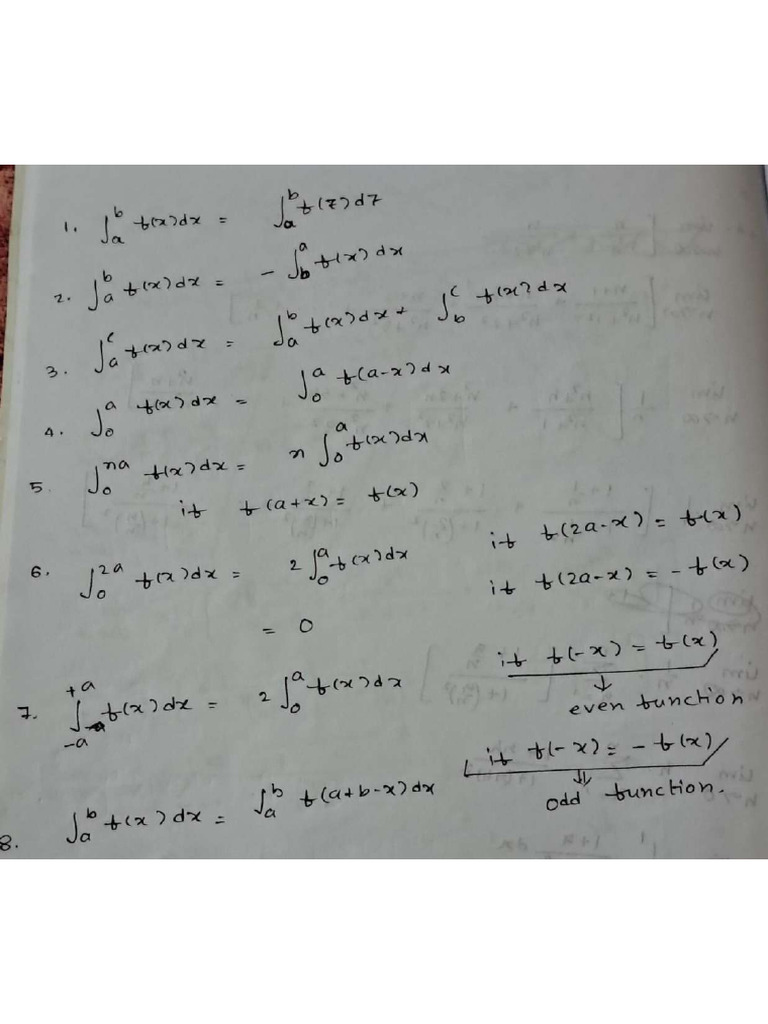 1. ∫_a^b f(x)dx = ∫_a^b f(z)dz
2. ∫_a^b f(x)dx = - ∫_b^a f(x)dx
3. ∫_a^c f(x)dx = ∫_a^b f(x)dx + ∫_b^c f(x)dx
4. ∫_0^a f(x)dx = ∫_0^a f(a-x)dx
5. ∫_0^{na} f(x)dx = n ∫_0^a f(x)dx
if f(a+x) = f(x)
6. ∫_0^{2a} f(x)dx = 2 ∫_0^a f(x)dx if f(2a-x) = f(x)
= 0 if f(2a-x) = - f(x)
7. ∫_{-a}^{+a} f(x)dx = 2 ∫_0^a f(x)dx if f(-x) = f(x)
↓
even function
if f(-x) = - f(x)
⇓
odd function.
8. ∫_a^b f(x)dx = ∫_a^b f(a+b-x)dx